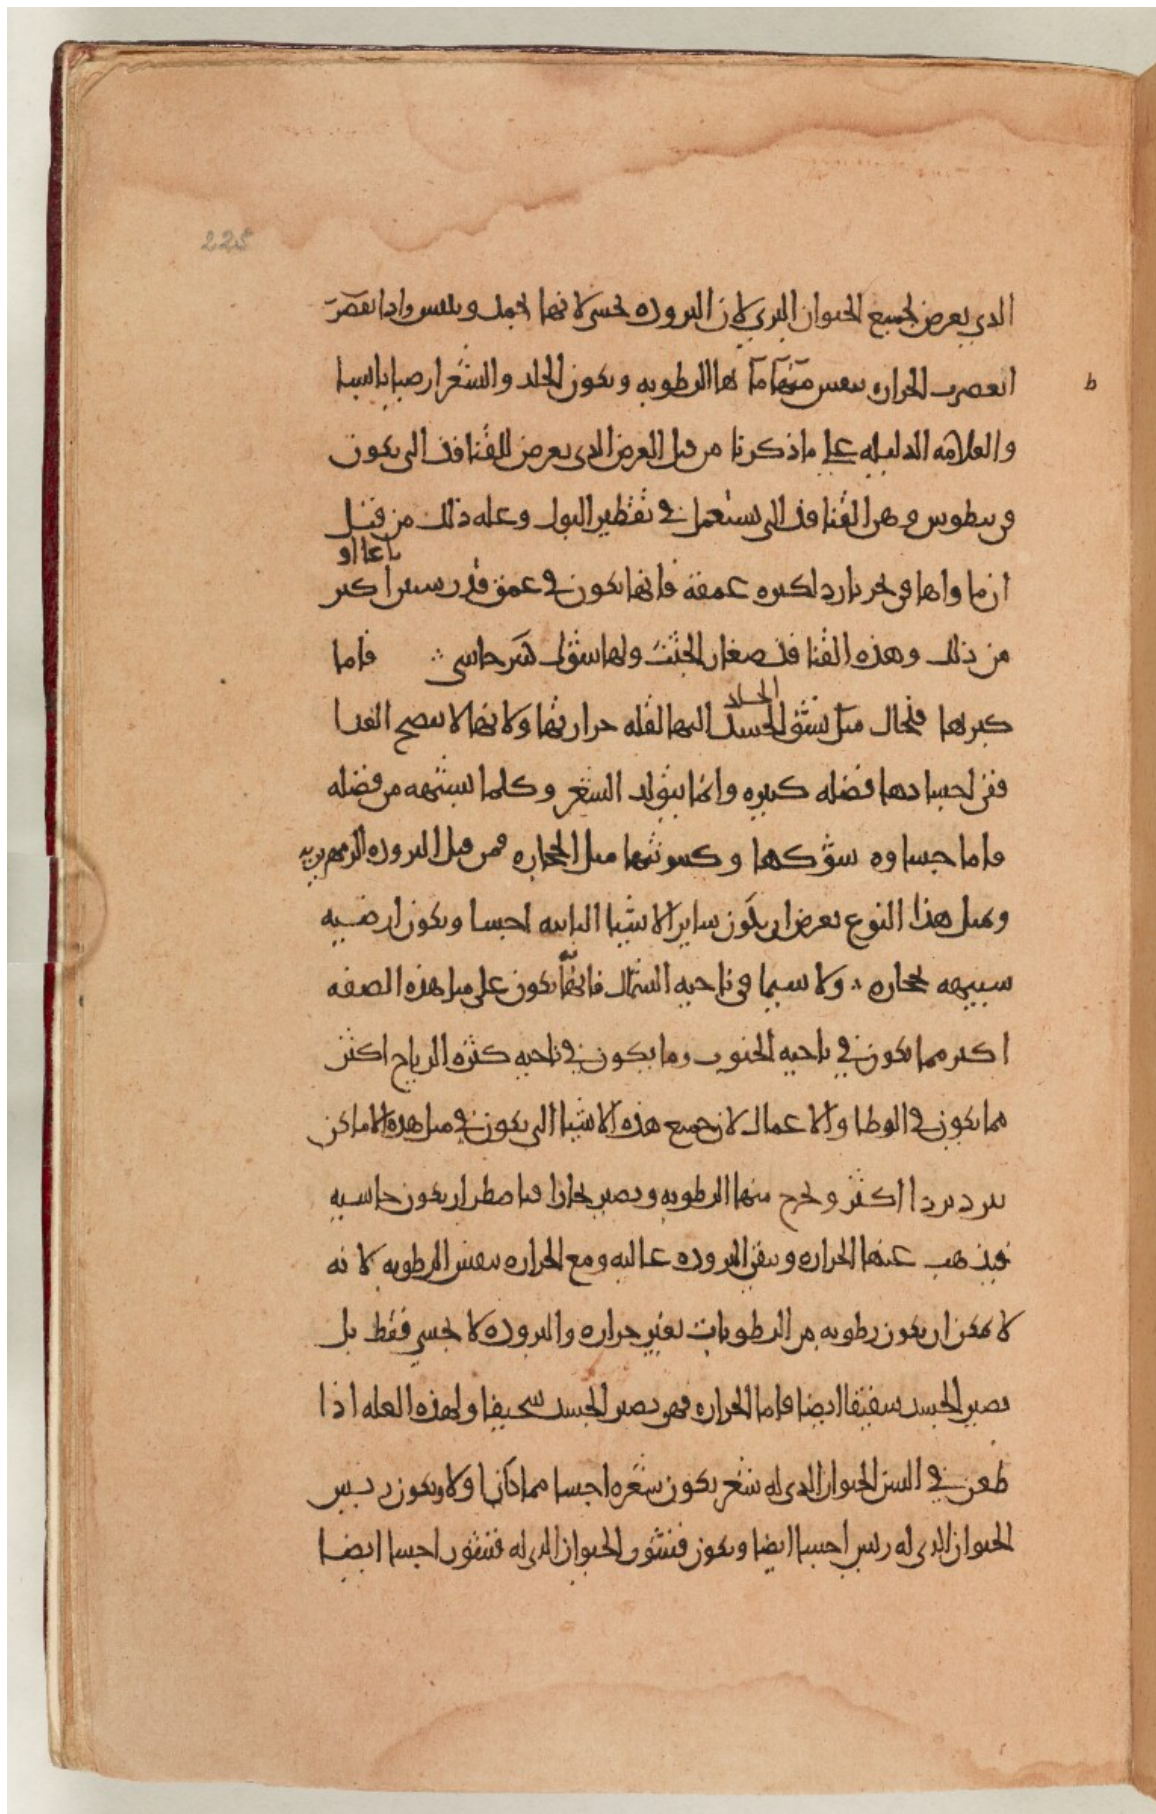 225
الذي يعرض لجميع الحيوان البري لان البروده تجسي لانها تجمد وتيبس واذا نقصت
b
انعصرت الحراره تنفس منها ما ها الرطوبه ويكون الجلد والشعر ارضيا يابسا
والعلامه الدليله على ما ذكرنا من قبل العرض الذي يعرض للقنافذ التي تكون
في بنطوس وهي القنافذ التي تستعمل في تقطير البول وعله ذلك من قبل
باعا او
ان ما واها في بحر بارد لكثره عمقه فانها تكون في عمق قدر ستين اكثر
من ذلك وهذه القنافذ صغار الجثث ولها شوك كبير جاسي ∴ فاما
الجلد
كبرها فلحال ميل نشق الجسد اليها لقله حرارتها ولانها لا تنضج الغذا
ففي اجسادها فضله كثيره وانما يتولد الشعر وكلما يشبهه من فضله
فاما جساوه شوكها وكينونتها مثل الحجاره فمن قبل البروده الزمهريريه
وبمثل هذا النوع يعرض ان يكون ساير الاشيا النابته اجسا ويكون ارضيه
شبيهه بحجاره ∴ ولا سيما في ناحيه الشمال فانها تكون على مثل هذه الصفه
اكثر مما تكون في ناحيه الجنوب وما يكون في ناحيه كثره الرياح اكثر
مما يكون في الوطا والاعمال لان جميع هذه الاشيا التي تكون في مثل هذه الاماكن
تبرد بردا اكثر وتخرج منها الرطوبه وتصير بخارا فباضطرار تكون جاسيه
فيذهب عنها الحراره وتبقى البروده غالبه ومع الحراره تنفش الرطوبه لانه
لا يمكن ان يكون رطوبه من الرطوبات بغير حراره والبروده لا تجسي فقط بل
تصير الجسد سفيقا ايضا فاما الحراره فهي تصير الجسد سخيفا ولهذه العله اذا
طعن في السن الحيوان الذي له شعر يكون شعره اجسا مما كان اولا ويكون ريش
الحيوان الذي له ريش اجسا ايضا ويكون قشور الحيوان الذي له قشور اجسا ايضا